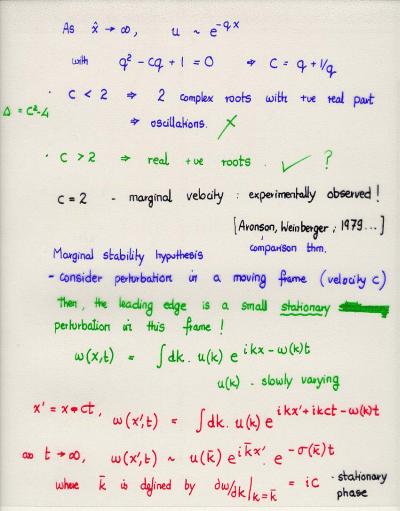 As x̂ → ∞, u ~ e^{-qx}
with q² - cq + 1 = 0 ⇒ c = q + 1/q
· c < 2 ⇒ 2 complex roots with +ve real part
Δ = c²-4
⇒ oscillations. ✗
· c > 2 ⇒ real +ve roots. ✓ ?
c = 2 - marginal velocity : experimentally observed!
[Aronson, Weinberger, 1979...]
comparison thm.
Marginal stability hypothesis
- consider perturbation in a moving frame (velocity c)
then, the leading edge is a small stationary
perturbation in this frame!
w(x,t) = ∫dk. u(k) e^{ikx - ω(k)t}
u(k) - slowly varying
x' = x - ct, w(x',t) = ∫dk. u(k) e^{ikx' + ikct - ω(k)t}
as t → ∞, w(x',t) ~ u(k̄) e^{ik̄x'}. e^{-σ(k̄)t}
where k̄ is defined by ∂ω/∂k|_{k=k̄} = ic · stationary
phase